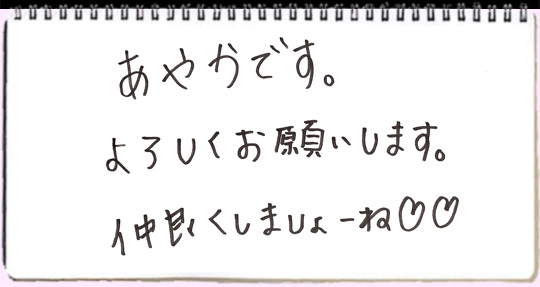 あやかです。
よろしくお願いします。
仲良くしましょーね♡♡